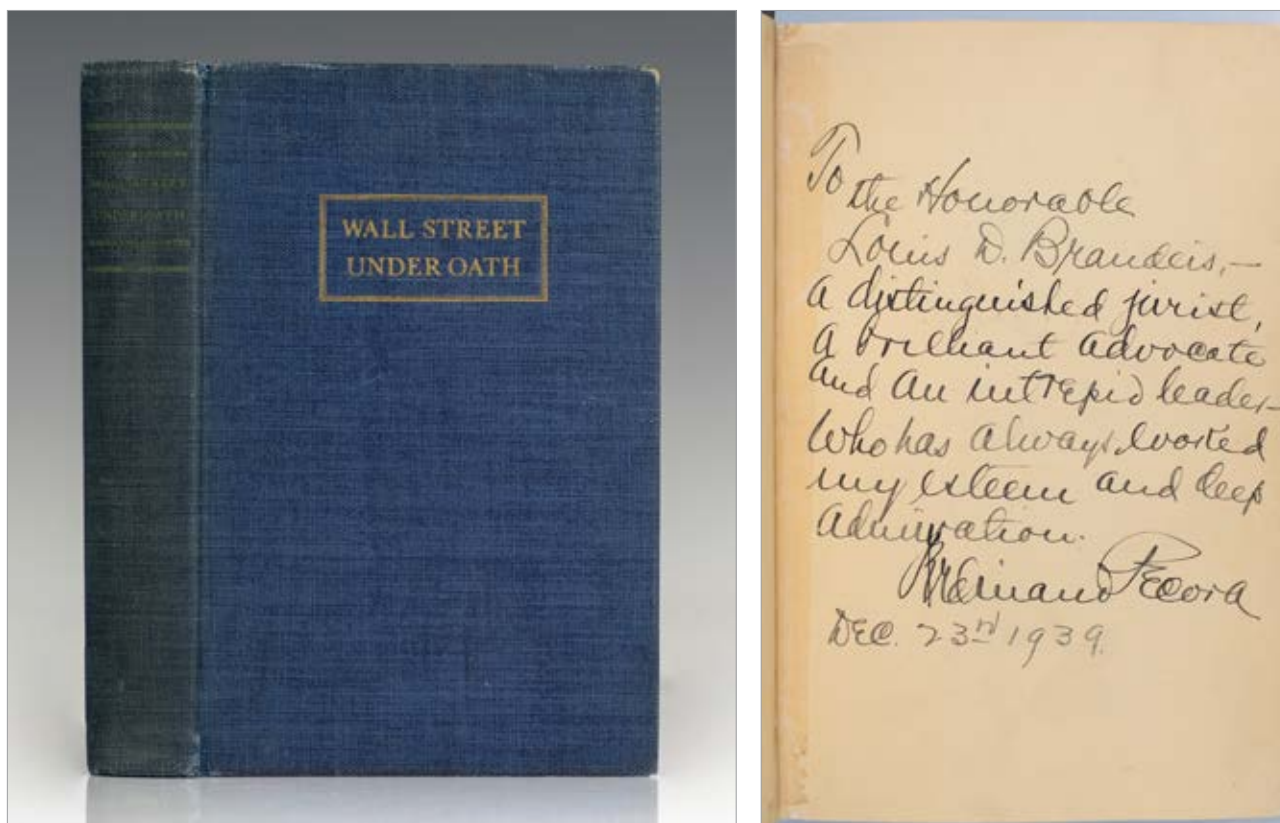 WALL STREET
UNDER OATH
WALL STREET
UNDER OATH
To
the Honorable
Louis D. Brandeis,—
a distinguished jurist,
a brilliant advocate
and an intrepid leader—
who has always evoked
my esteem and deep
admiration.
Ferdinand Pecora
DEC. 23rd 1939.